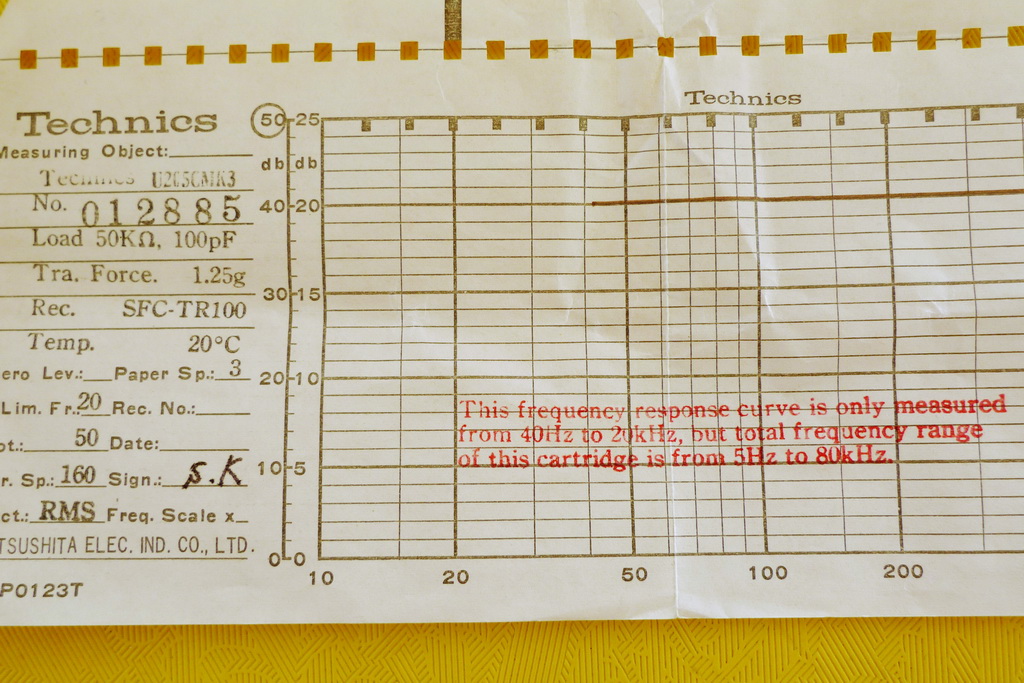 Technics
Measuring Object:
Technics U205CMK3
No. 012885
Load 50KΩ, 100pF
Tra. Force. 1.25g
Rec. SFC-TR100
Temp. 20°C
ero Lev.: Paper Sp.: 3
Lim. Fr.: 20 Rec. No.:
ot.: 50 Date:
r. Sp.: 160 Sign.: S.K
ct.: RMS Freq. Scale x
TSUSHITA ELEC. IND. CO., LTD.
P0123T
Technics
50 25
db db
40 20
30 15
20 10
10 5
0 0
This frequency response curve is only measured
from 40Hz to 20kHz, but total frequency range
of this cartridge is from 5Hz to 80kHz.
10 20 50 100 200